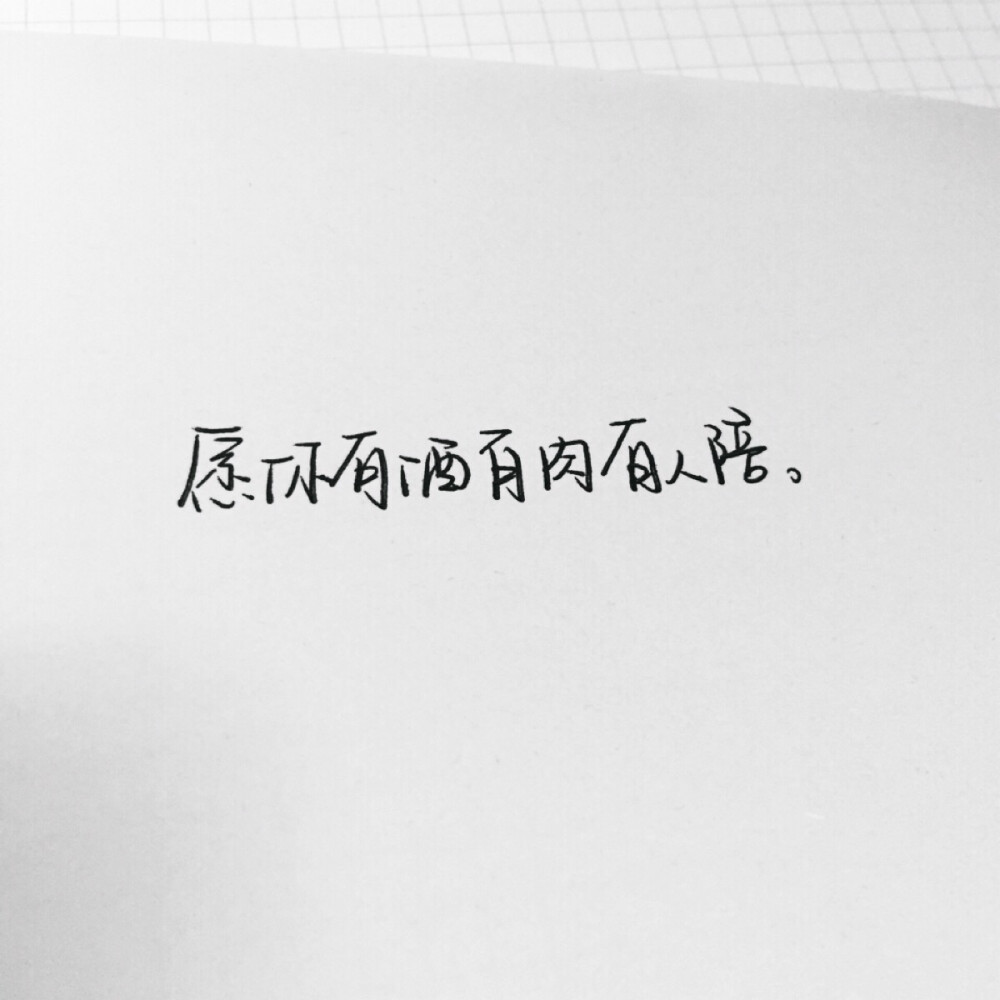 愿你有酒有肉有人陪。